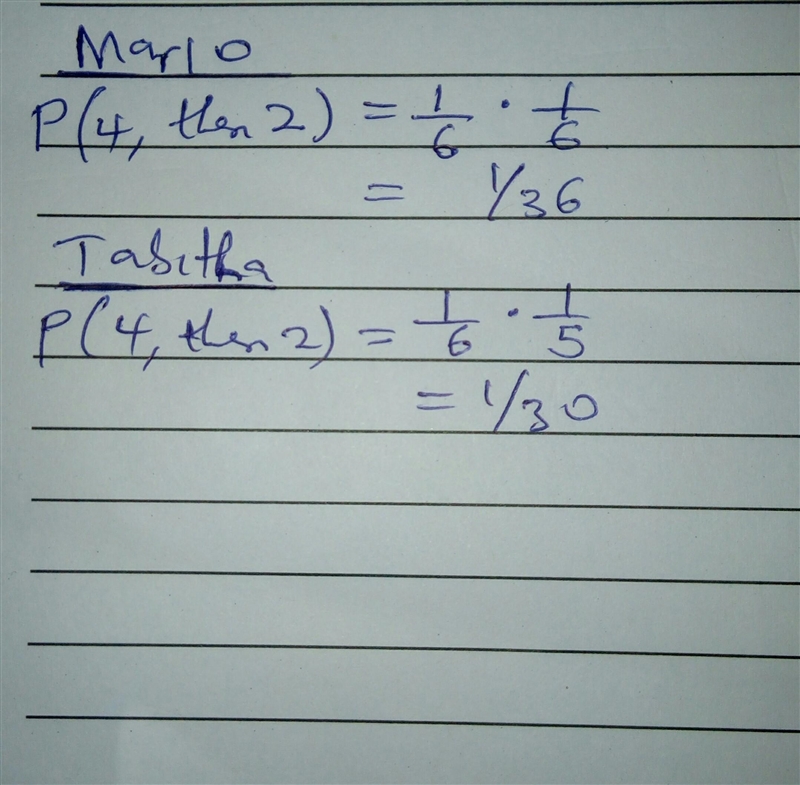 Mario
P(4, then 2) = 1/6 · 1/6
= 1/36
Tabitha
P(4, then 2) = 1/6 · 1/5
= 1/30